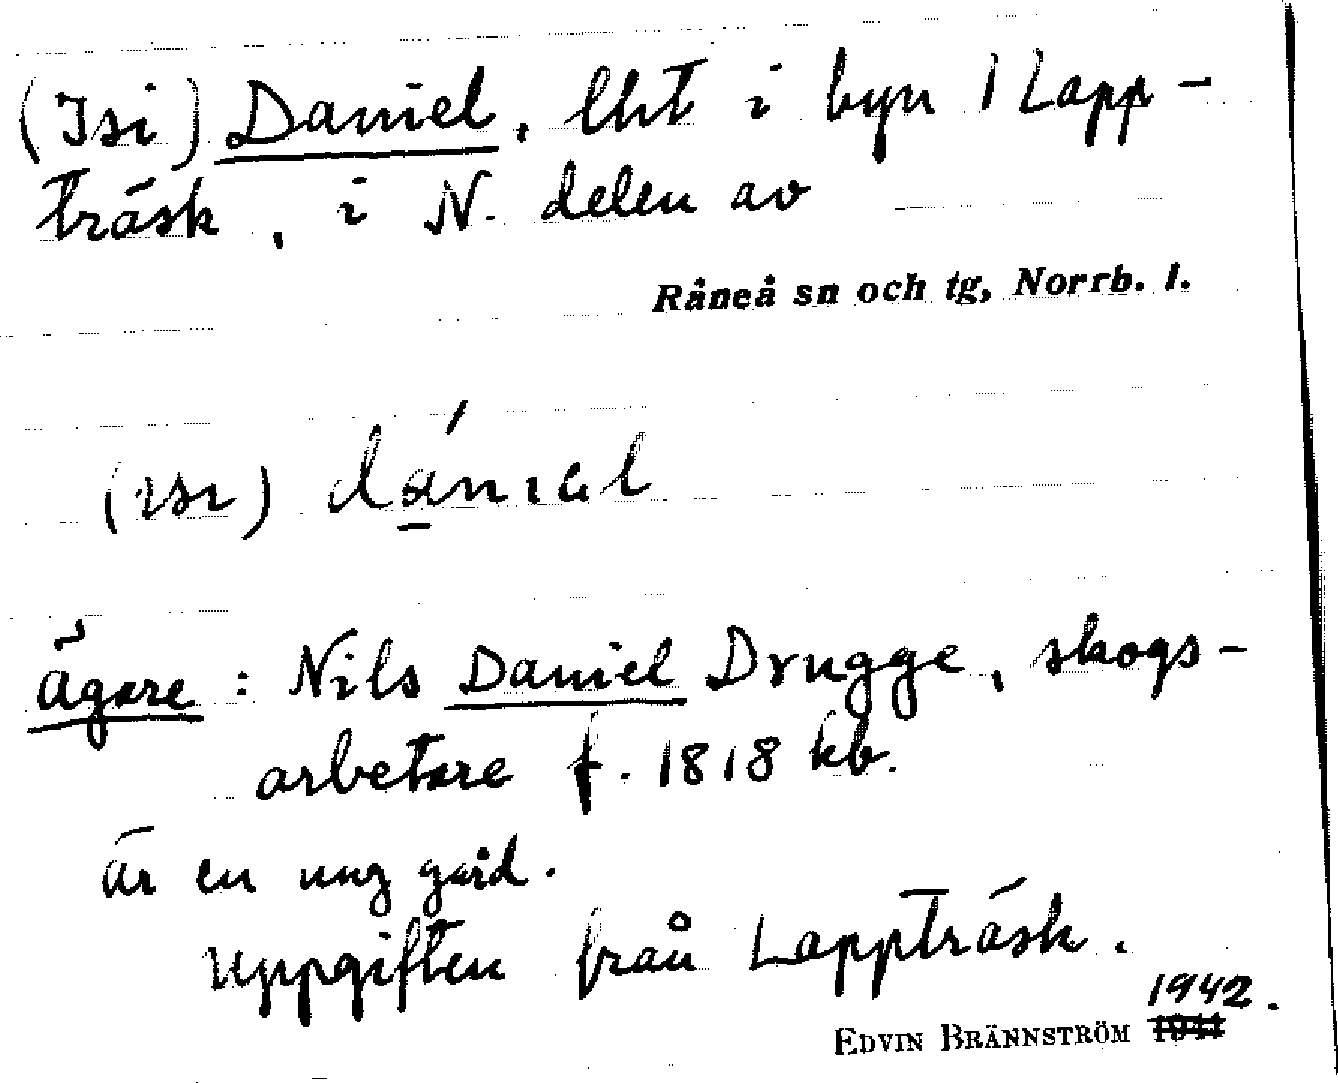 (Isi) Daniel, lht i byn 1 Lapp-
träsk, i N. delen av
Råneå sn och tg, Norrb. l.
(ısı) dánıal
Ägare: Nils Daniel Drugge, skogs-
arbetare f. 1818 kb.
är en ung gård.
Uppgiften från Lappträsk.
1942.
EDVIN BRÄNNSTRÖM 1941